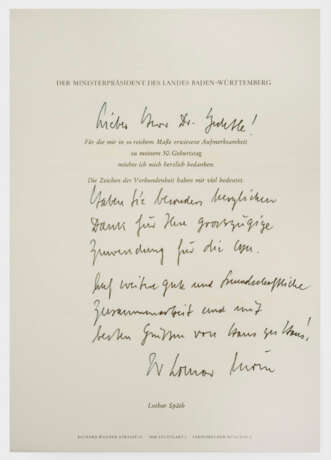 DER MINISTERPRÄSIDENT DES LANDES BADEN-WÜRTTEMBERG
Lieber Herr Dr.
Für die mir in so reichem Maße erwiesene Aufmerksamkeit
zu meinem 50. Geburtstag
möchte ich mich herzlich bedanken.
Die Zeichen der Verbundenheit haben mir viel bedeutet.
Haben Sie besonders herzlichen
Dank für Ihre grosszügige
Zuwendung für die
Auf weitere gute und freundschaftliche
Zusammenarbeit und mit
besten Grüßen von Haus zu Haus!
Ihr Lothar Späth
Lothar Späth
RICHARD-WAGNER-STRASSE 15 · 7000 STUTTGART 1 ·